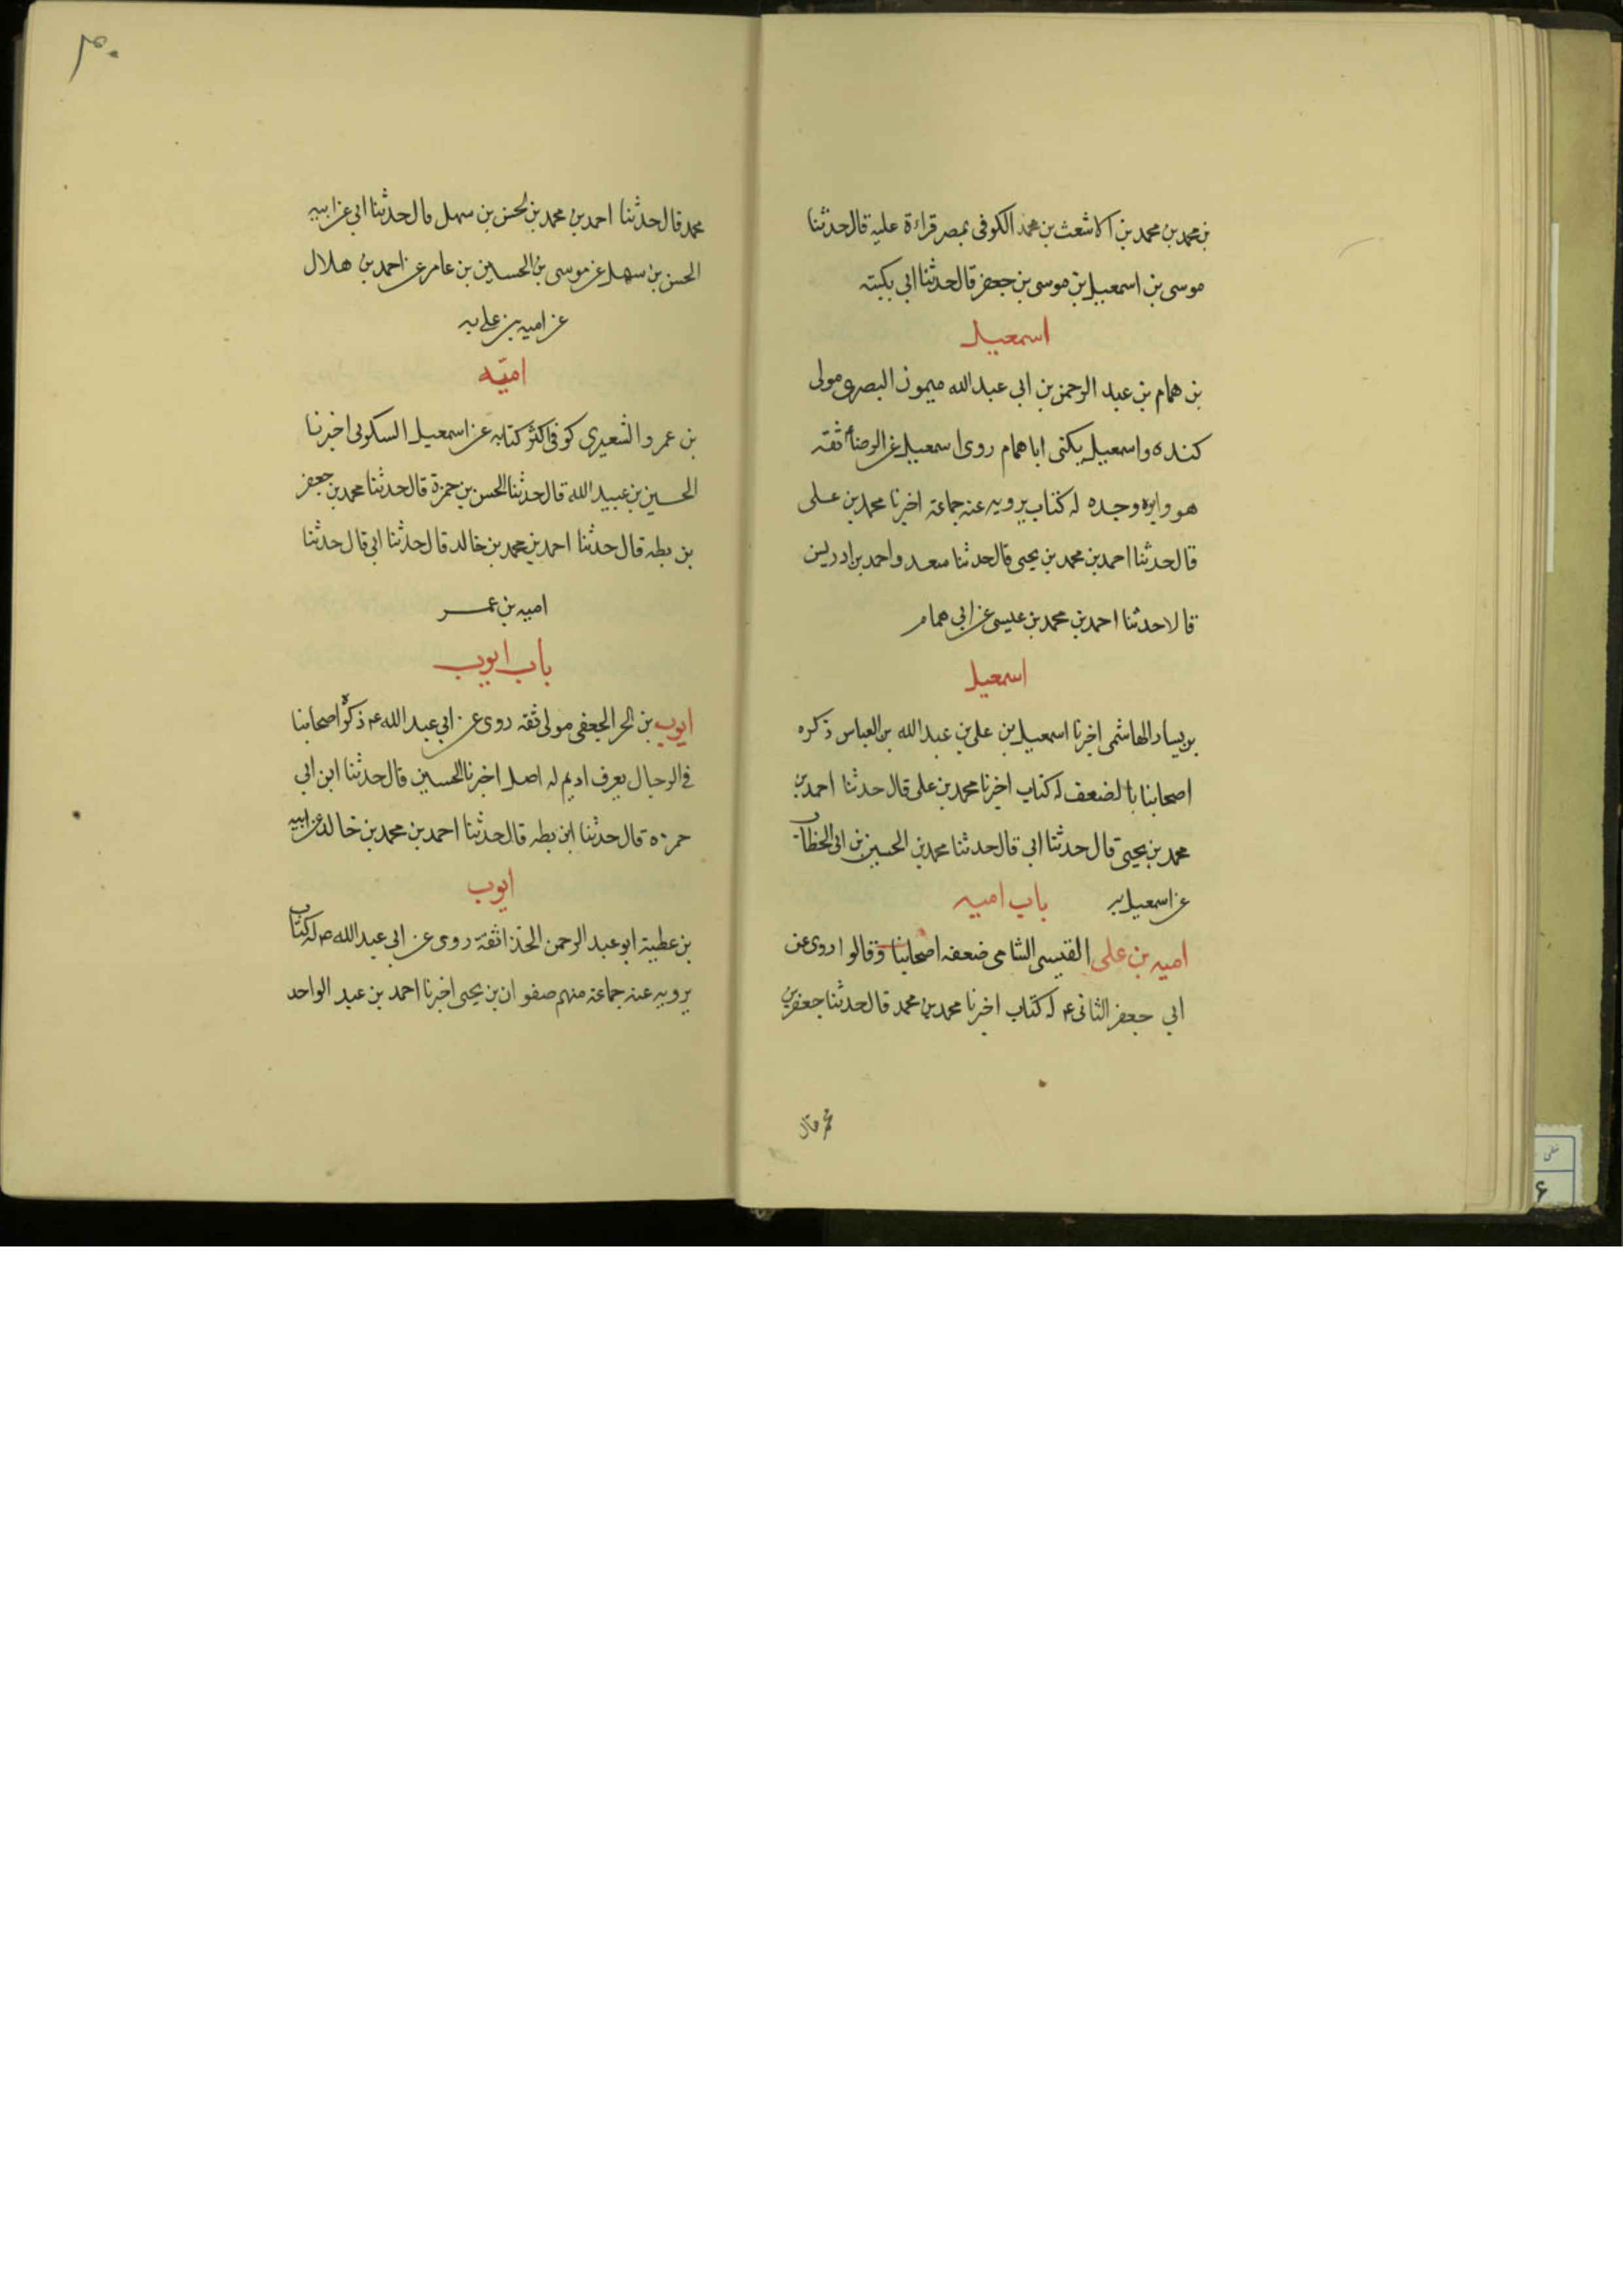 بن محمد بن محمد بن الاشعث بن محمد الكوفى بمصر قراءة عليه قال حدثنا
موسى بن اسمعيل بن موسى بن جعفر قال حدثنا ابى بكتبه
اسمعيل
بن همام بن عبد الرحمن بن ابى عبد الله ميمون البصرى مولى
كنده واسمعيل يكنى ابا همام روى اسمعيل عن الرضا ثقه
هو وابوه وجده له كتاب يرويه عنه جماعة اخبرنا محمد بن على
قال حدثنا احمد بن محمد بن يحيى قال حدثنا سعد واحمد بن ادريس
قالا حدثنا احمد بن محمد بن عيسى عن ابى همام
اسمعيل
بن يسار الهاشمى اخبرنا اسمعيل بن على بن عبد الله بن العباس ذكره
اصحابنا بالضعف له كتاب اخبرنا محمد بن على قال حدثنا احمد بن
محمد بن يحيى قال حدثنا ابى قال حدثنا محمد بن الحسين بن ابى الخطاب
عن اسمعيل به باب اميه
اميه بن على القيسى الشامى ضعفه اصحابنا وقالوا روى عن
ابى جعفر الثانى ع له كتاب اخبرنا محمد بن محمد قال حدثنا جعفر بن
محمد قال
٣٠
محمد قال حدثنا احمد بن محمد بن الحسن بن سهل قال حدثنا ابى عن ابيه
الحسن بن سهل عن موسى بن الحسين بن عامر عن احمد بن هلال
عن اميه بن على به
اميّه
بن عمرو الشعيرى كوفى اكثر كتابه عن اسمعيل السكونى اخبرنا
الحسين بن عبيد الله قال حدثنا الحسن بن حمزة قال حدثنا محمد بن جعفر
بن بطه قال حدثنا احمد بن محمد بن خالد قال حدثنا ابى قال حدثنا
اميه بن عمر
باب ايوب
ايوب بن الحر الجعفى مولى ثقه روى عن ابى عبد الله ع ذكره اصحابنا
فى الرجال يعرف اديم له اصل اخبرنا الحسين قال حدثنا ابن ابى
حمزه قال حدثنا ابن بطه قال حدثنا احمد بن محمد بن خالد عن ابيه
ايوب
بن عطية ابو عبد الرحمن الحذا ثقة روى عن ابى عبد الله ع له كتاب
يرويه عنه جماعة منهم صفوان بن يحيى اخبرنا احمد بن عبد الواحد